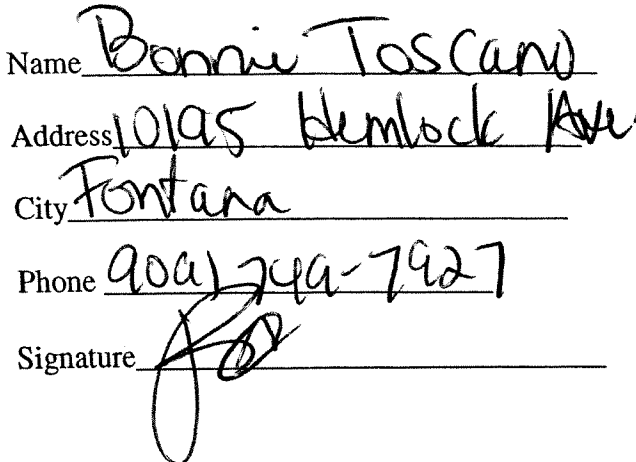 Name Bonnie Toscano
Address 10195 Hemlock Ave.
City Fontana
Phone 909) 749-7927
Signature